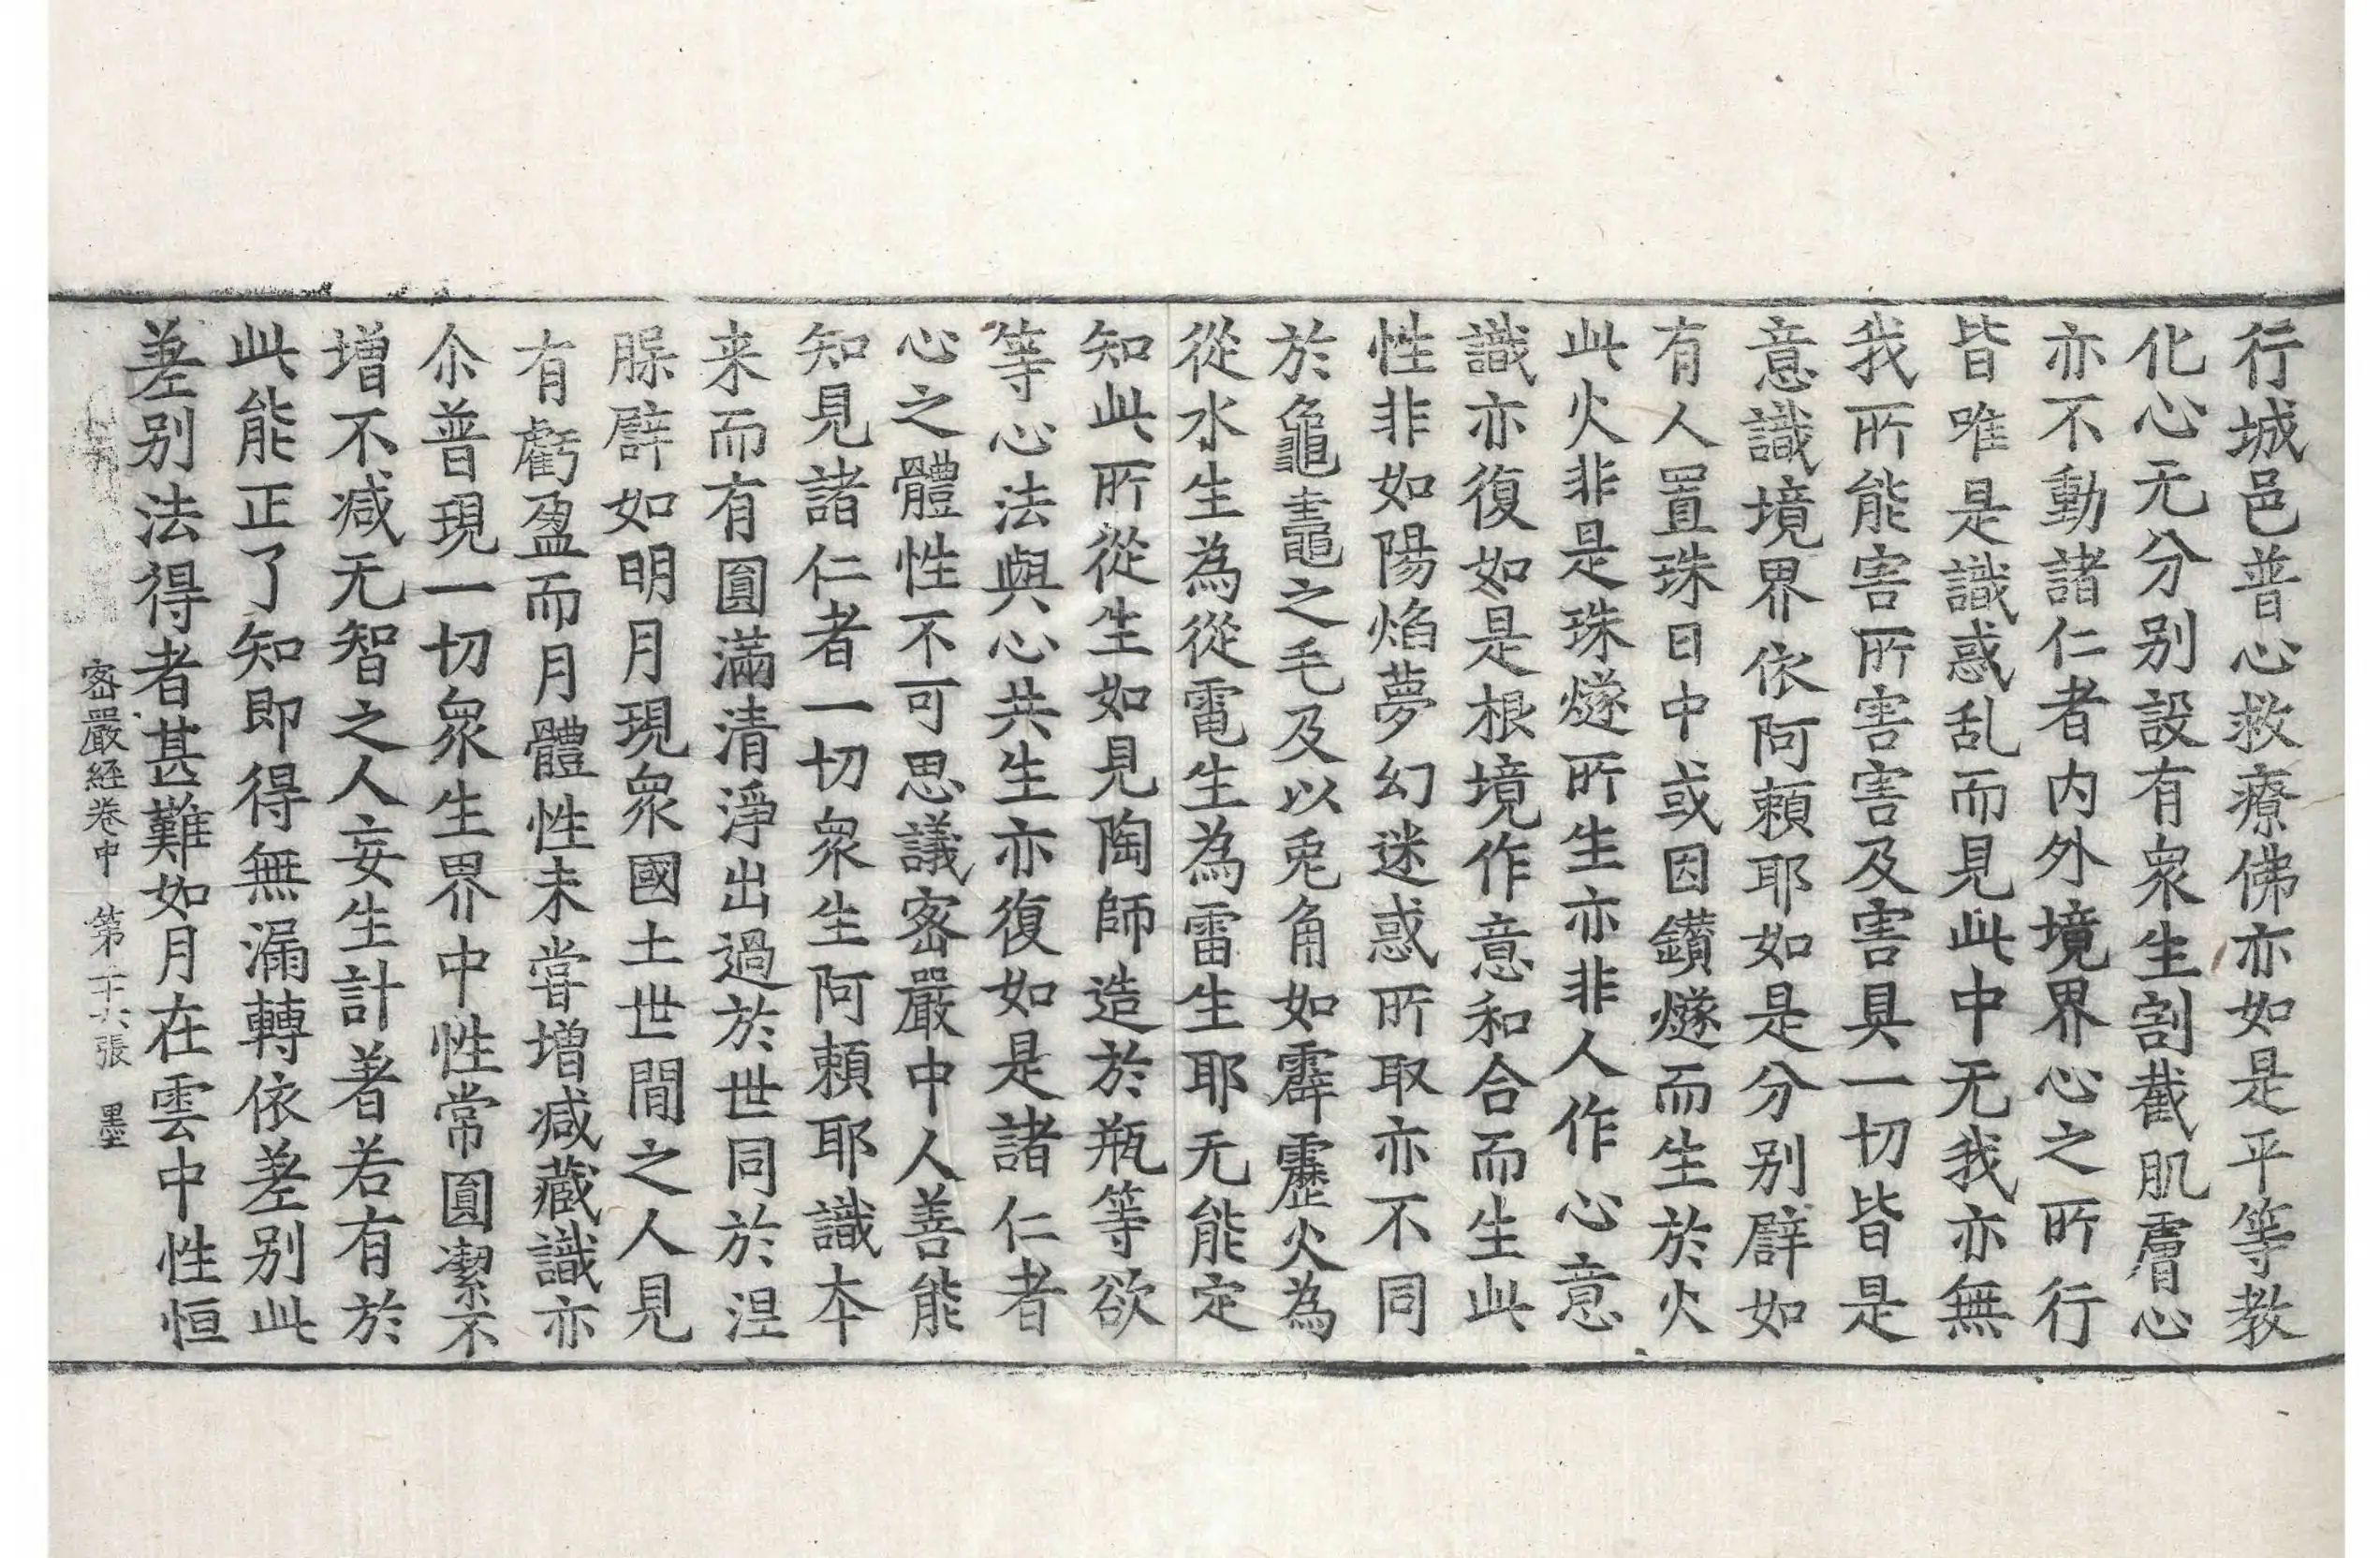 行城邑普心救療佛亦如是平等教
化心无分别設有衆生割截肌膚心
亦不動諸仁者内外境界心之所行
皆唯是識惑乱而見此中无我亦無
我所能害所害害及害具一切皆是
意識境界依阿頼耶如是分别譬如
有人置珠日中或因鑚燧而生於火
此火非是珠燧所生亦非人作心意
識亦復如是根境作意和合而生此
性非如陽焰夢幻迷惑所取亦不同
於龜鼈之毛及以兎角如霹靂火為
從水生為從電生為雷生耶无能定
知此所從生如見陶師造於瓶等欲
等心法與心共生亦復如是諸仁者
心之體性不可思議宻嚴中人善能
知見諸仁者一切衆生阿頼耶識本
来而有圓滿清淨出過於世同於涅
槃譬如明月現衆國土世間之人見
有虧盈而月體性未甞増减藏識亦
尒普現一切衆生界中性常圓潔不
増不减无智之人妄生計著若有於
此能正了知即得無漏轉依差别此
差别法得者甚難如月在雲中性恒
宻嚴經卷中 第十六張 墨